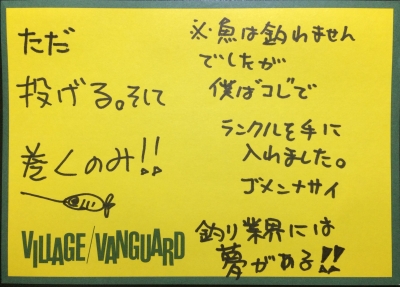 ただ
投げる。そして
巻くのみ!!
VILLAGE/VANGUARD
※魚は釣れません
でしたが
僕はコレで
ランクルを手に
入れました。
ゴメンナサイ
釣り業界には
夢がある!!